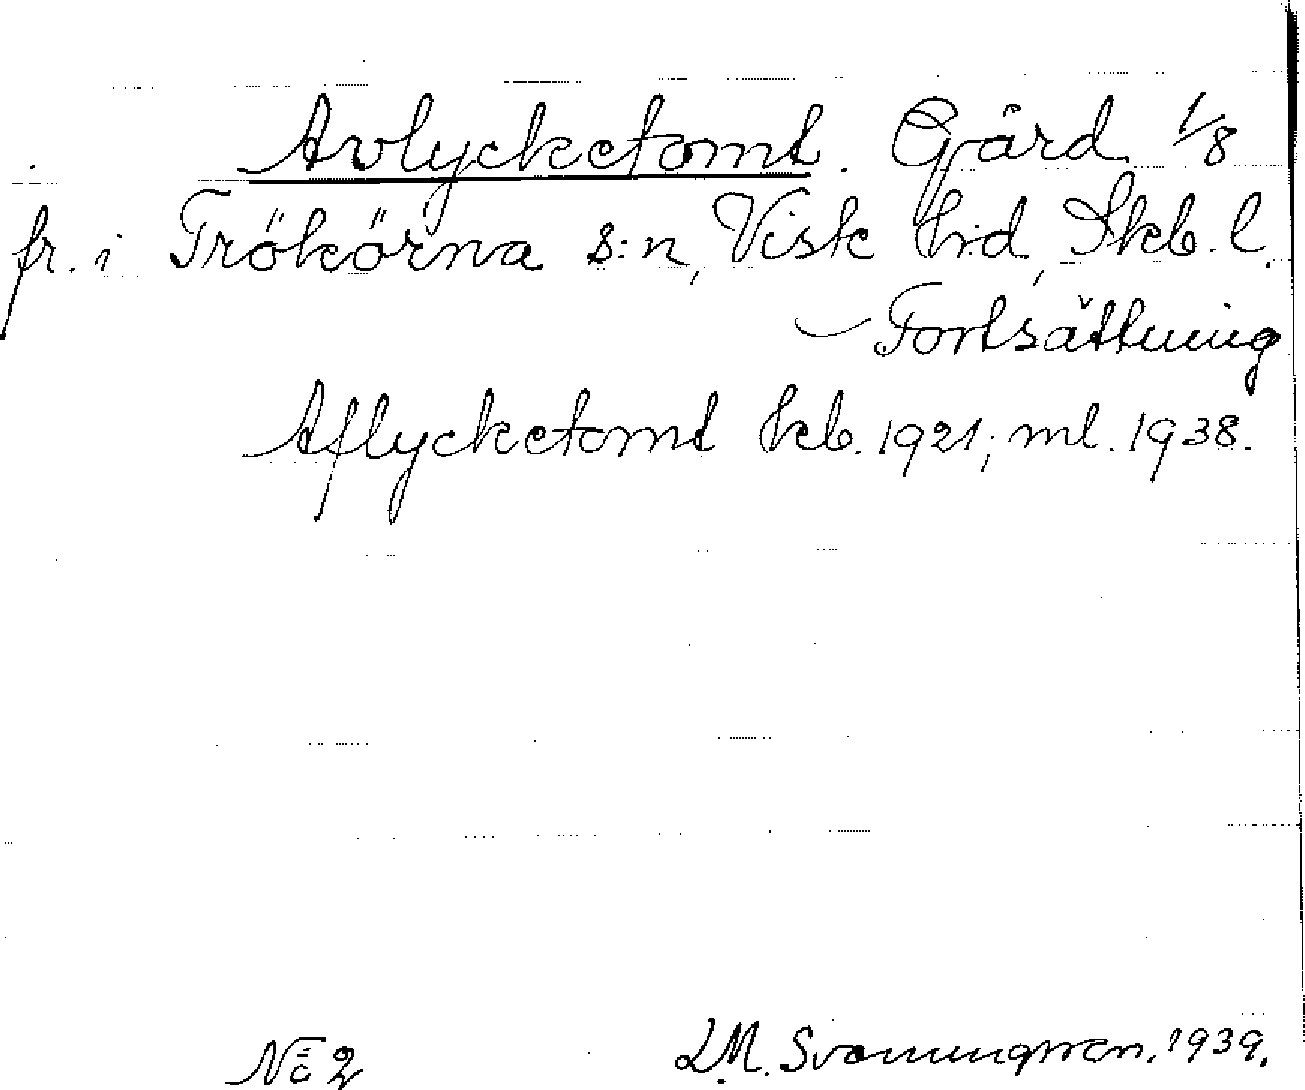 Avlycketomt. Gård 1/8
fr. i Trökörna s:n, Visk hd, Skb. l.
– Fortsättning
Aflycketomt kb. 1921; ml. 1938.
No 2 L.M. Svanungren. 1939.